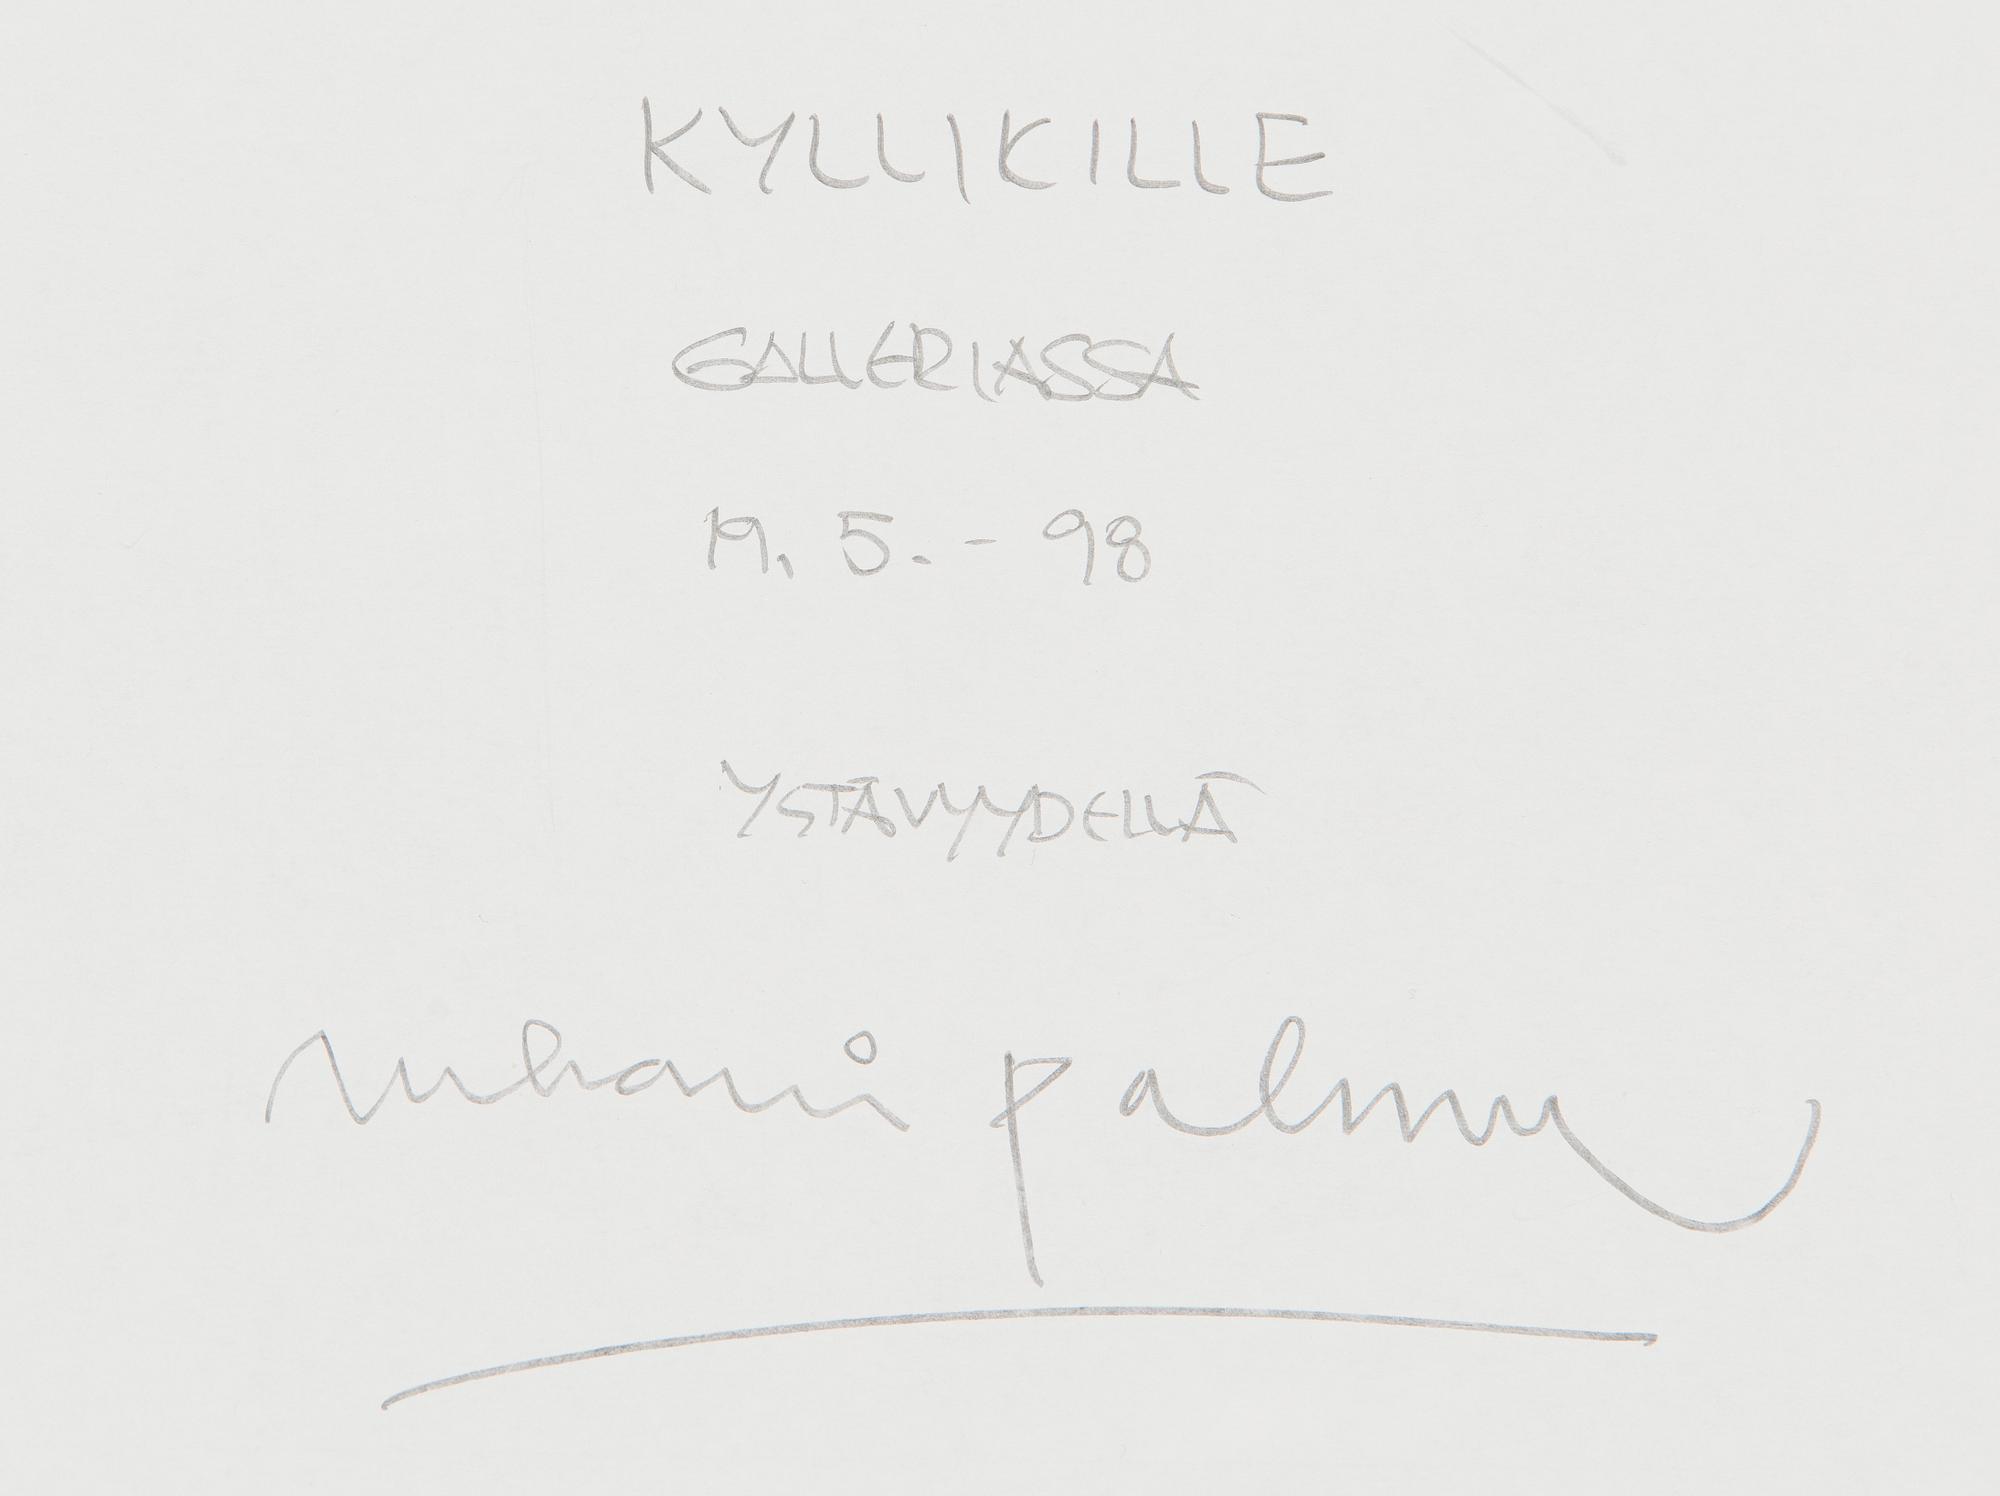 KYLLIKILLE
GALLERIASSA
19. 5. - 98
YSTÄVYYDELLÄ
Juhani Palmu